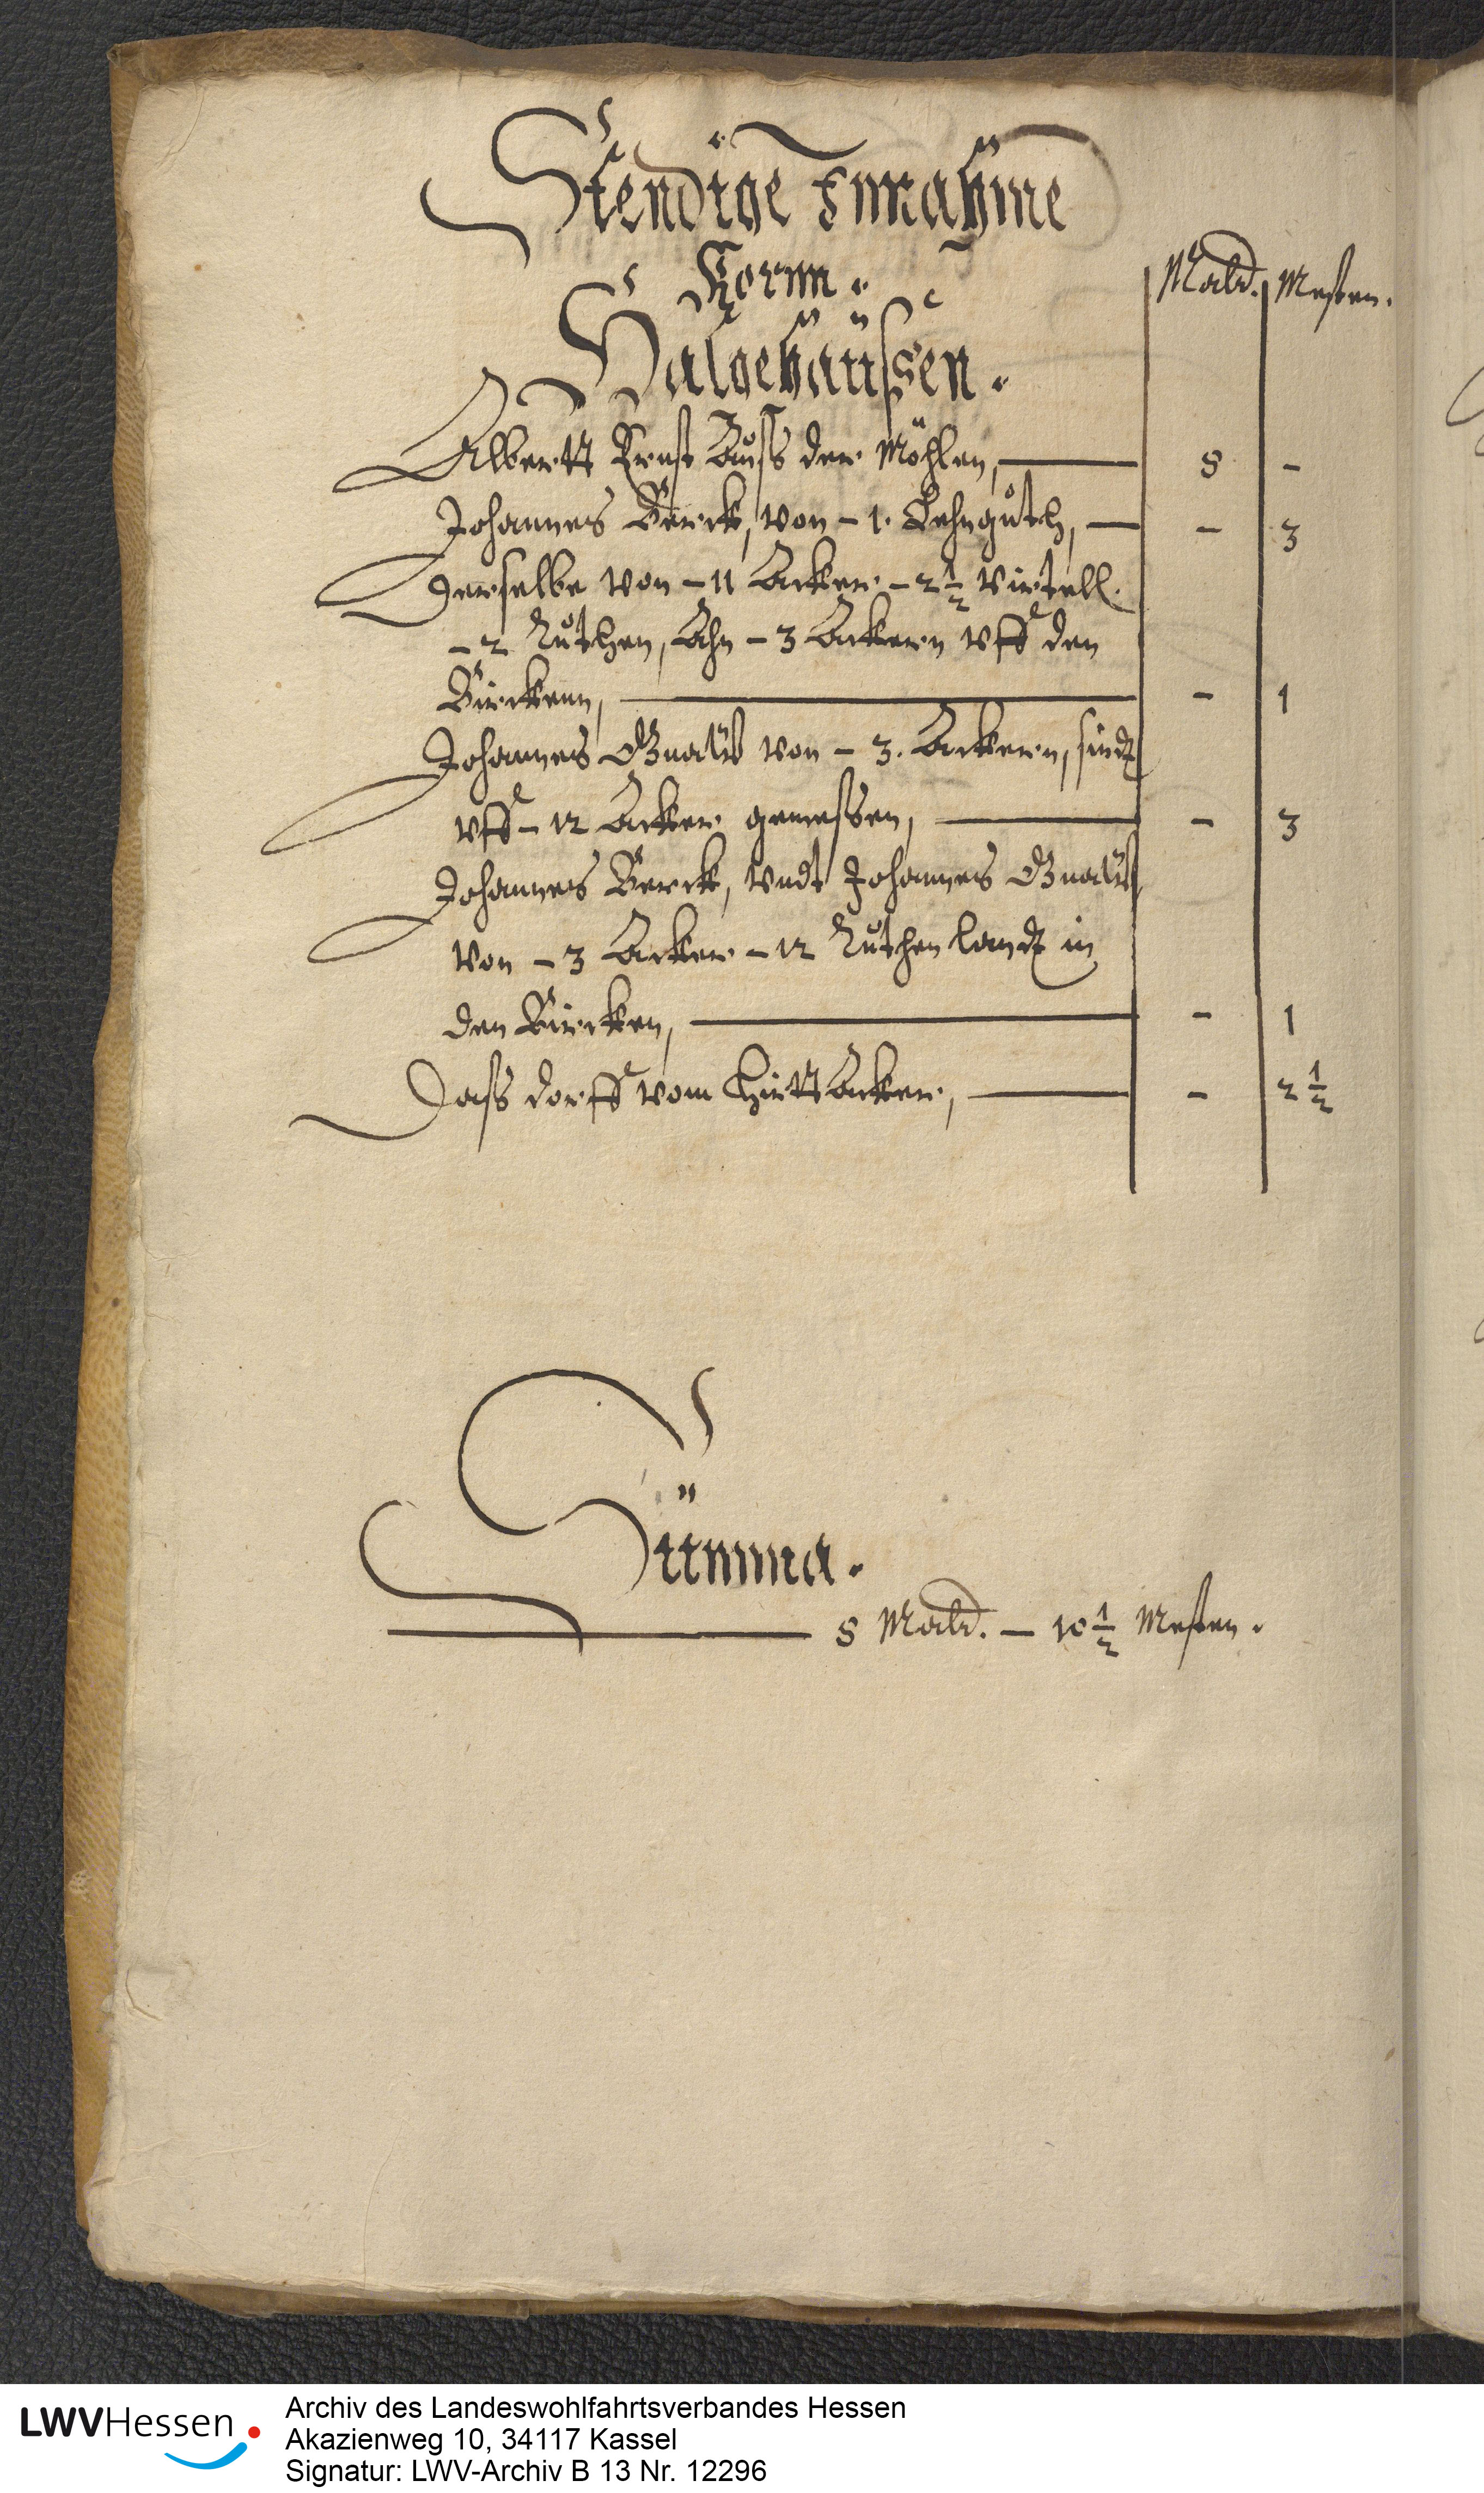 Stendige Innahme
Kornn.
Mald. Mesten.
Halgehaüßen.
Albertt Ernst Auß der Möhlen, 8 -
Johannes Berck, von - 1. Lehnguth, - 3
Derselbe von - 11 Acker - 2 1/2 virtell.
- 2 Ruthen, Ahn - 3 Ackern vff den
Birckenn, - 1
Johannes Gnaw von - 3. Ackern, sindt
vff - 12 Acker gemessen, - 3
Johannes Berck, vndt Johannes Gnaw
von - 3 Acker - 12 Ruthen landt in
den Bircken, - 1
Daß dorff vom HirttAcker, - 2 1/2
Summa.
8 Mald. - 10 1/2 Mesten.
LWVHessen
Archiv des Landeswohlfahrtsverbandes Hessen
Akazienweg 10, 34117 Kassel
Signatur: LWV-Archiv B 13 Nr. 12296